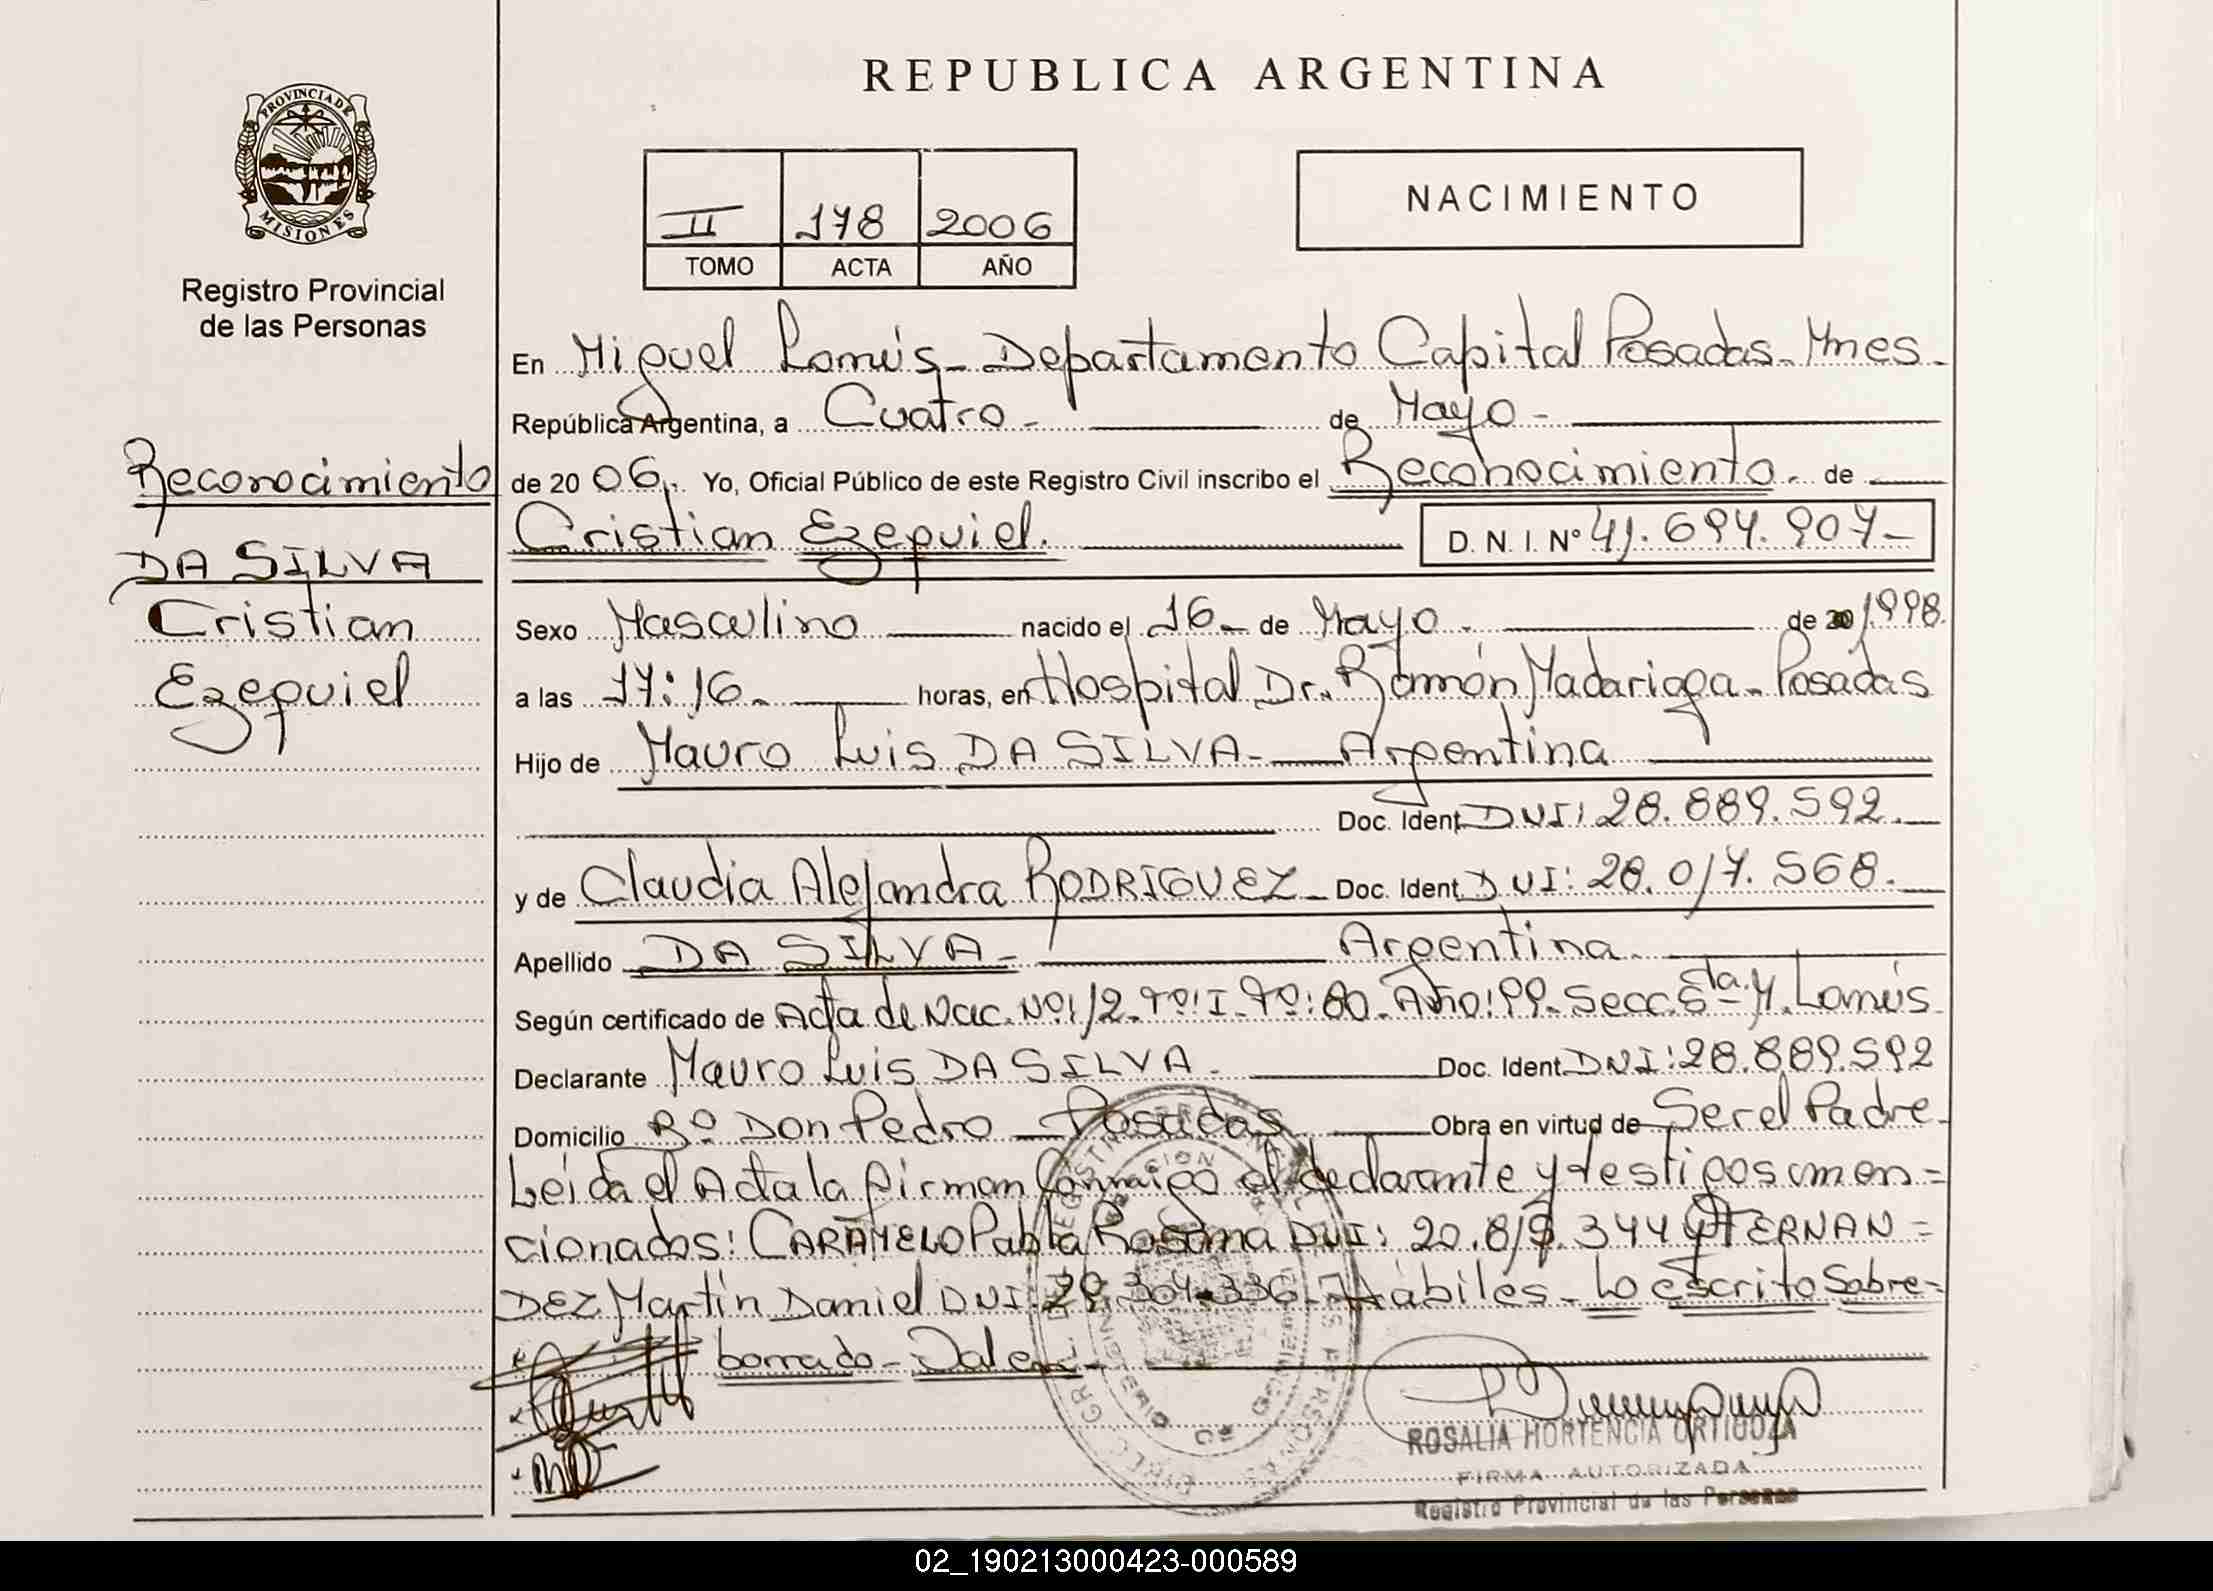 REPUBLICA ARGENTINA
PROVINCIA DE MISIONES
Registro Provincial
de las Personas
II 178 2006
TOMO ACTA AÑO
NACIMIENTO
Reconocimiento
DA SILVA
Cristian
Ezequiel
En Miguel Lanús - Departamento Capital Posadas - Mnes -
República Argentina, a Cuatro - de Mayo -
de 20 06. Yo, Oficial Público de este Registro Civil inscribo el Reconocimiento - de
Cristian Ezequiel. D. N. I. Nº 41.694.907-
Sexo Masculino nacido el 16 - de Mayo - de 20 1998.
a las 17:16 - horas, en Hospital Dr. Ramón Madariaga - Posadas
Hijo de Mauro Luis DA SILVA - Argentina
Doc. Ident DNI: 28.889.592.
y de Claudia Alejandra RODRIGUEZ - Doc. Ident DNI: 28.017.568.
Apellido DA SILVA - Argentina -
Según certificado de Acta de Nac. Nº: 12 - Tº: I - Fº: 80 - Año: 99 - Secc. 6ta. M. Lanús
Declarante Mauro Luis DA SILVA - Doc. Ident DNI: 28.889.592
Domicilio Bº Don Pedro - Posadas Obra en virtud de Ser el Padre -
Leída el Acta la firman conmigo el declarante y testigos men=
cionados: CARAMELO Pabla Rosana DNI: 20.819.344 y FERNAN=
DEZ Martín Daniel DNI: 29.304.336 - Hábiles - Lo escrito Sobre=
borrado - Valen -
ROSALIA HORTENCIA ORTIGOZA
FIRMA AUTORIZADA
Registro Provincial de las Personas
02_190213000423-000589